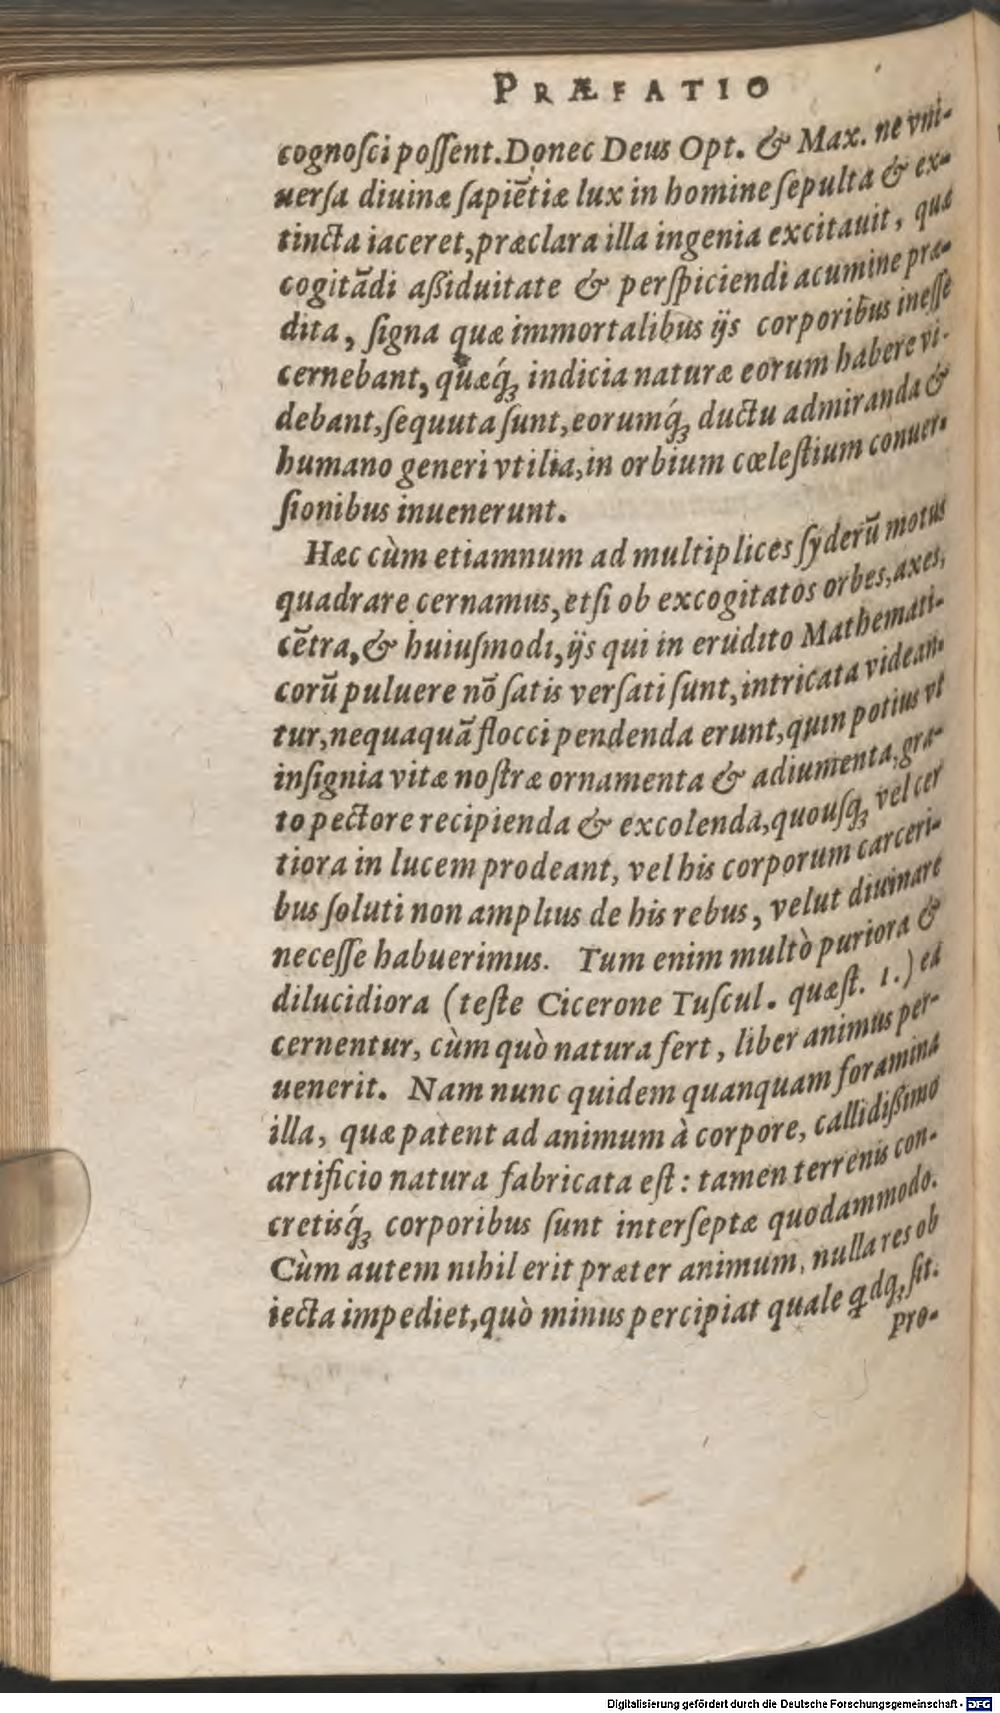 PRÆFATIO
cognoſci poſſent. Donec Deus Opt. & Max. ne vni-
uerſa diuinæ ſapiẽtiæ lux in homine ſepulta & ex-
tincta iaceret, præclara illa ingenia excitauit, quæ
cogitãdi aßiduitate & perſpiciendi acumine præ-
dita, ſigna quæ immortalibus ijs corporibus ineſſe
cernebant, quæq́; indicia naturæ eorum habere vi-
debant, ſequuta ſunt, eorumq́; ductu admiranda &
humano generi vtilia, in orbium cœleſtium conuer-
ſionibus inuenerunt.
Hæc cùm etiamnum ad multiplices ſyderũ motus
quadrare cernamus, etſi ob excogitatos orbes, axes,
cẽtra, & huiuſmodi, ijs qui in erudito Mathemati-
corũ puluere nõ ſatis verſati ſunt, intricata videan-
tur, nequaquã flocci pendenda erunt, quin potius vt
inſignia vitæ noſtræ ornamenta & adiumenta, gra-
to pectore recipienda & excolenda, quouſq; vel cer
tiora in lucem prodeant, vel his corporum carceri-
bus ſoluti non amplius de his rebus, velut diuinare
neceſſe habuerimus. Tum enim multò puriora &
dilucidiora (teſte Cicerone Tuſcul. quæſt. 1.) ea
cernentur, cùm quò natura fert, liber animus per-
uenerit. Nam nunc quidem quanquam foramina
illa, quæ patent ad animum à corpore, callidißimo
artificio natura fabricata eſt: tamen terrenis con-
cretisq́; corporibus ſunt interſeptæ quodammodo.
Cùm autem nihil erit præter animum, nulla res ob
iecta impediet, quò minus percipiat quale qdq; ſit.
Pro-
Digitalisierung gefördert durch die Deutsche Forschungsgemeinschaft - DFG